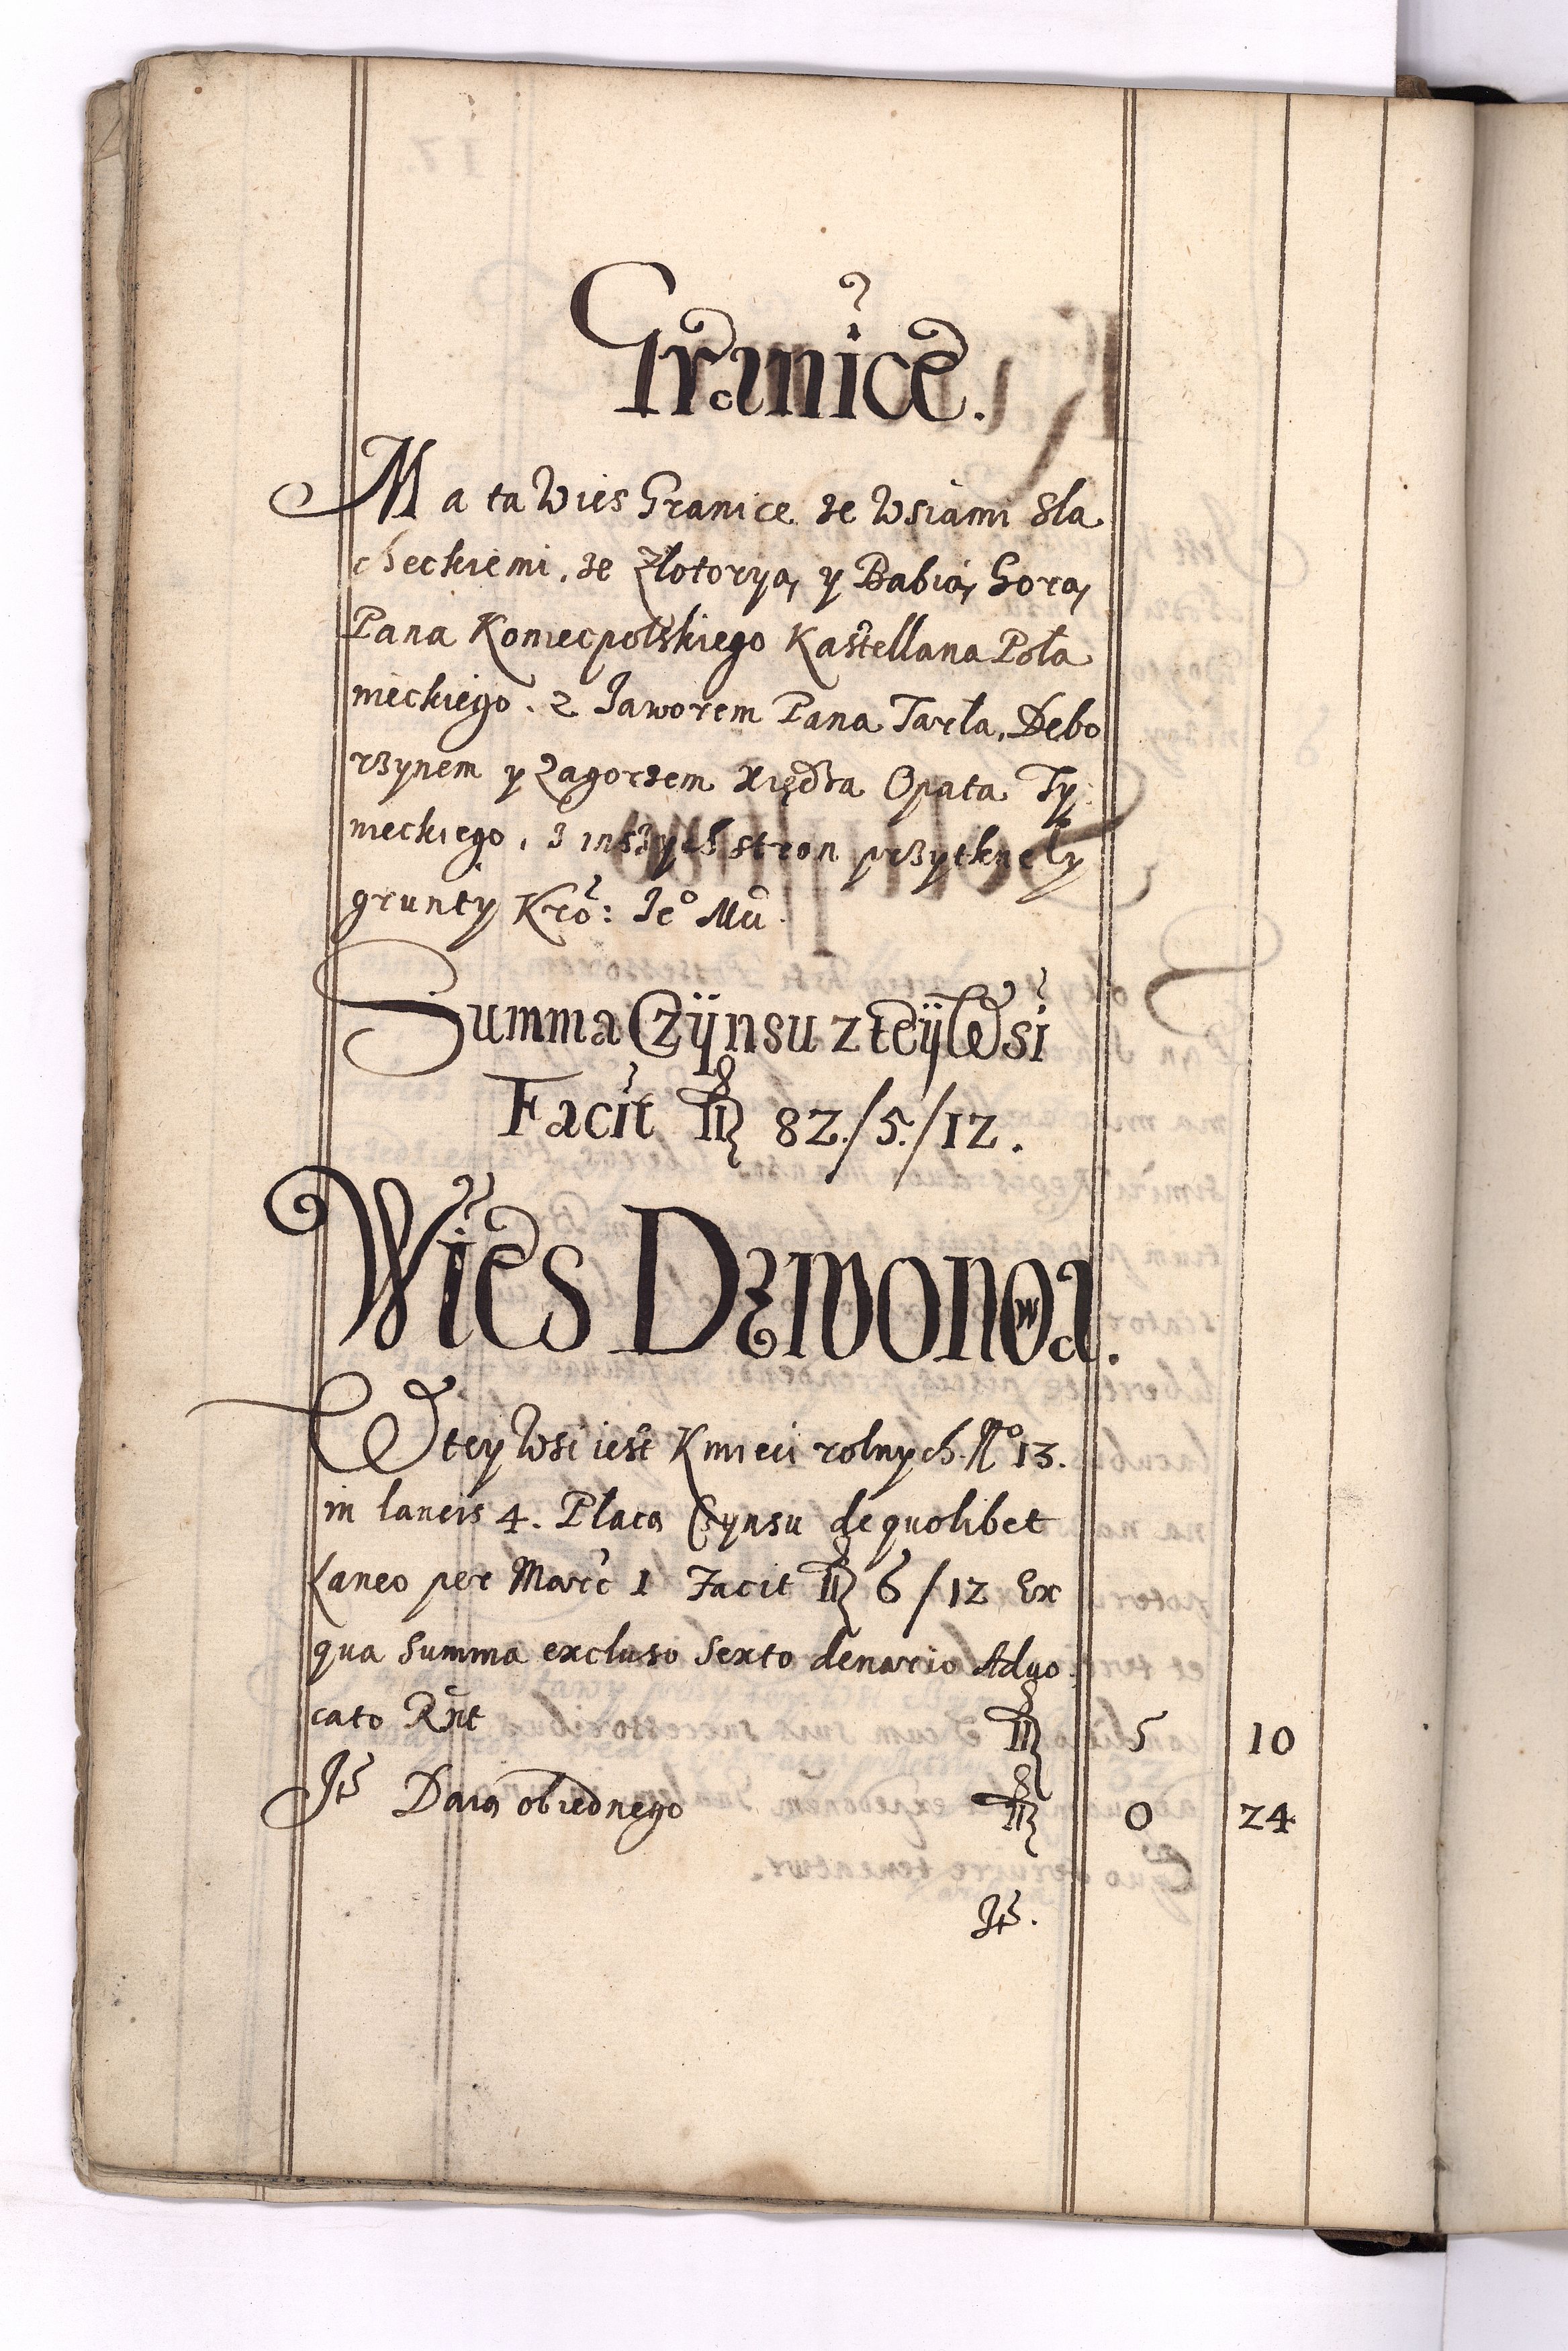 Granice.
Ma ta Wies Granice ze Wsiami Sla
checkiemi, ze Zlotoryą y Babią Gorą
Pana Koniecpolskiego Kastellana Poła
nieckiego. z Jaworem Pana Tarła, Debo
rzynem y Zagorzem Xiędza Opata Ty
nieckiego, z inszych stron przytknęły
grunty Kro: Je° Mci
Summa Czÿnsu z teÿ Wsi
Facit 82./5./12.
Wies Dęmbonowa.
W tey Wsi iest Kmieci rolnych. N° 13.
in laneis 4. Placą Czynsu de quolibet
Laneo per Marc 1 Facit 6/12 Ex
qua summa excluso sexto denario Aduo
cato Rñt 5 10
Jt Daią obiednego 0 24
Jt.